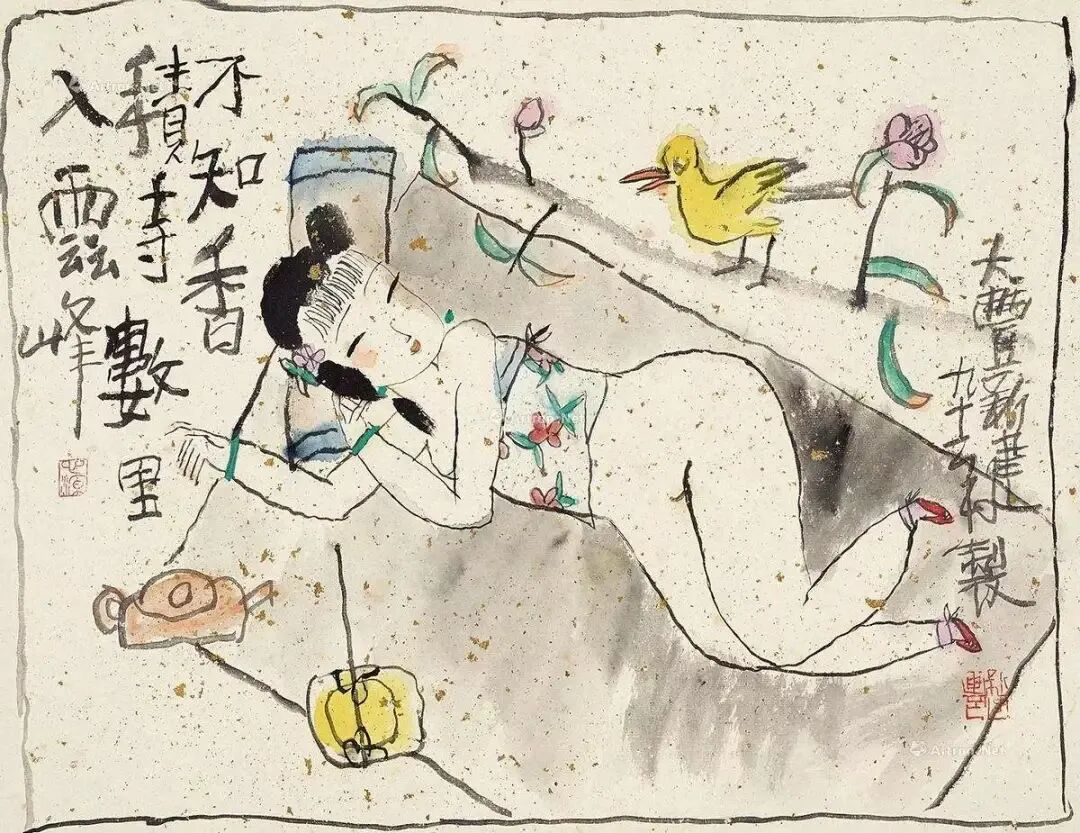 不知香
積寺數里
入雲峰
大豐新建
九十製
Artron.Net